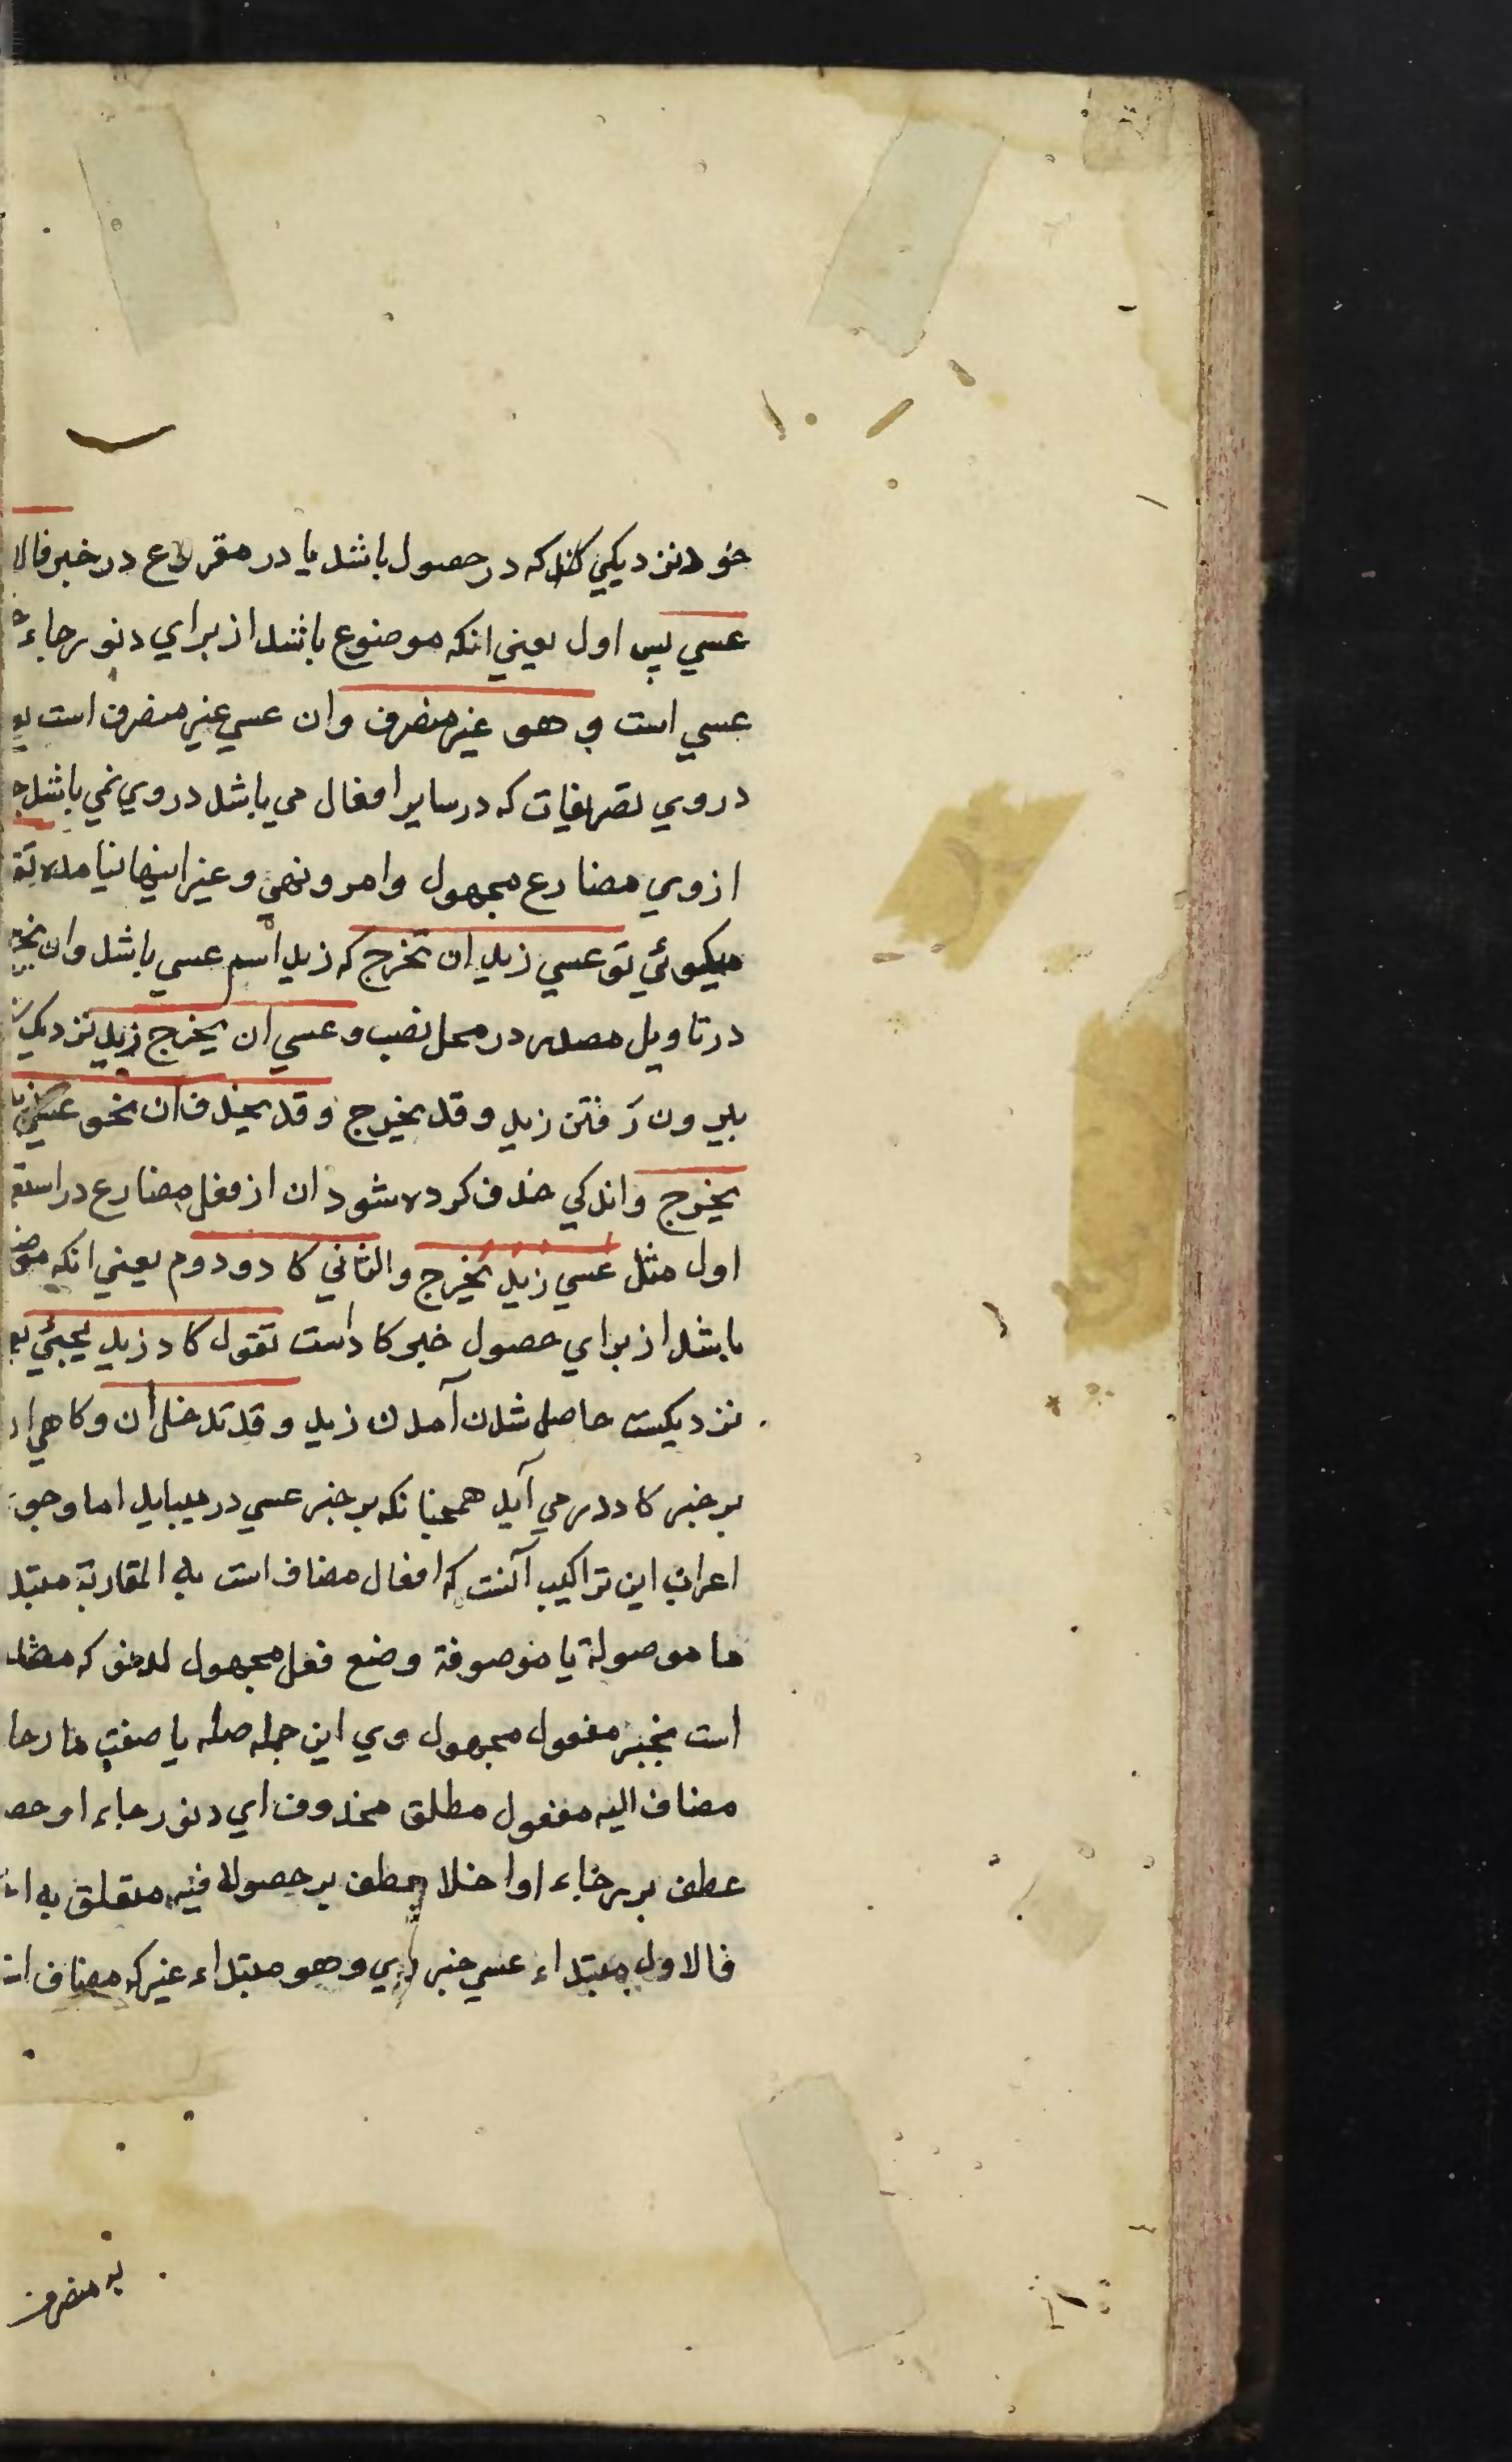 خود نزديكي كند كه در حصول باشد يا در مقر در خبر فالا
عسي پس اول يعني انكه موضوع باشد از براي دنو رجاء
عسي است و هو غير متصرف وان عسي غير متصرف است
در وي تصريفات كه در ساير افعال مي باشد در وي نمي باشد
از وي مضارع مجهول وامر ونهي وغير اينها نيامده تق
ميكوئي تو عسي زيد ان يخرج كه زيد اسم عسي باشد وان يخر
در تاويل مصدر در محل نصب وعسي ان يخرج زيد نزديك
بيرون رفتن زيد وقد يخرج وقد يحذف ان نحو عسي
يخرج واندكي حذف كرده شود ان از فعل مضارع در استع
اول مثل عسي زيد يخرج والثاني كاد و دوم يعني انكه موض
باشد از براي حصول خبر كاد است تقول كاد زيد يجيئ
نزديكست حاصل شدن آمدن زيد وقد تدخل ان وكاهي
بر خبر كاد در مي آيد همچنانكه بر خبر عسي در ميايد اما وجو
اعراب اين تراكيب آنست كه افعال مضاف است به المقاربة مبتد
ما موصولة يا موصوفة وضع فعل مجهول لدنو كه مضا
است بخبر مفعول مجهول وي اين جمله صله يا صفت ما رجا
مضاف اليه مفعول مطلق محذوف اي دنو رجاء او حص
عطف بر رجاء او اخذا عطف بر حصولا فيه متعلق به ا
فالاول مبتداء عسي خبر وي وهو مبتداء غير كه مضاف ا
به متصرف